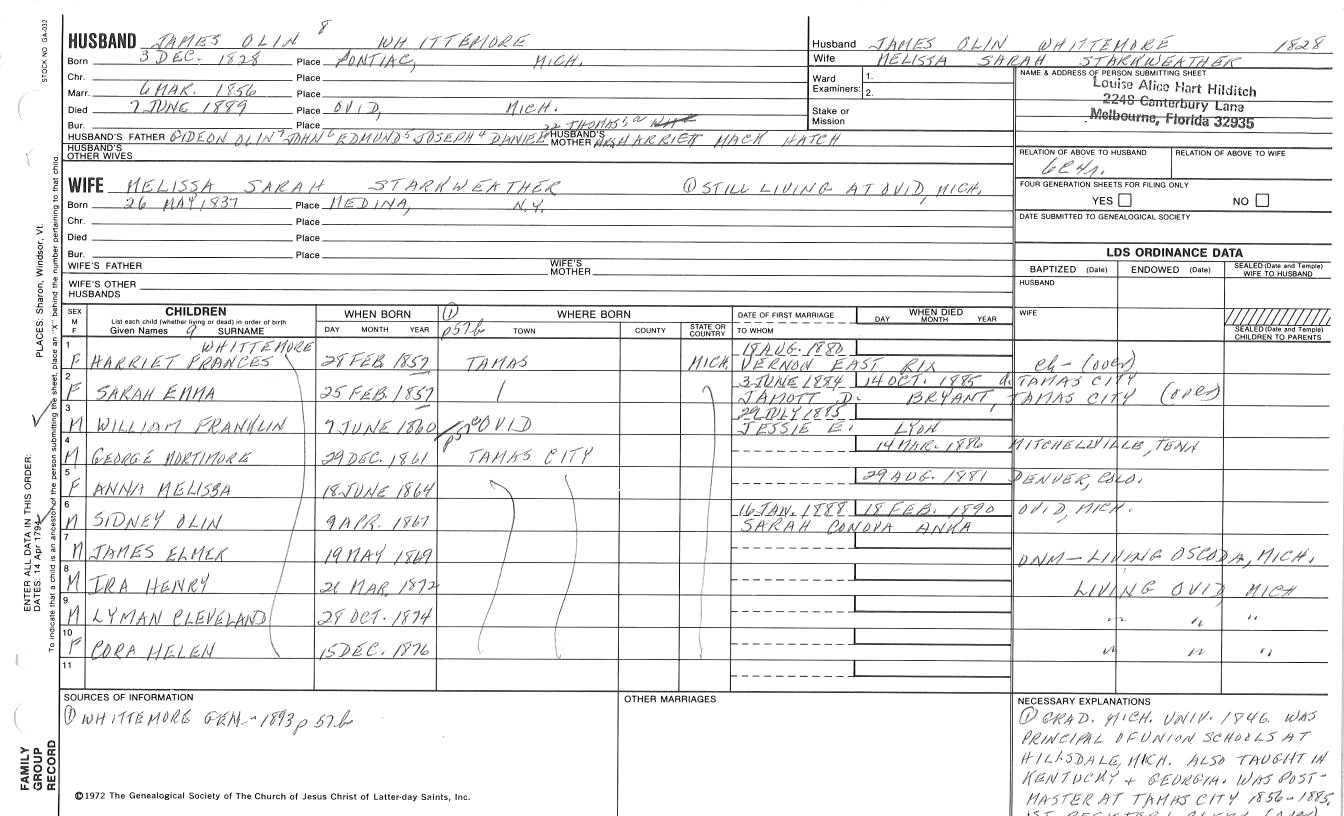 STOCK NO. GA-032
8
HUSBAND JAMES OLIN WHITTEMORE
Born 3 DEC. 1828 Place PONTIAC, MICH.
Chr. Place
Marr. 6 MAR. 1856 Place
Died 7 JUNE 1889 Place OVID, MICH.
Bur. Place
HUSBAND'S FATHER GIDEON OLIN7 JOHN6 EDMUND5 JOSEPH4 DANIEL HUSBAND'S MOTHER HARRIETT MACK HATCH
22 THOMAS
HUSBAND'S
OTHER WIVES
WIFE MELISSA SARAH STARKWEATHER ① STILL LIVING AT OVID, MICH.
Born 26 MAY 1837 Place MEDINA, N.Y.
Chr. Place
Died Place
Bur. Place
WIFE'S FATHER WIFE'S MOTHER
WIFE'S OTHER
HUSBANDS
Husband JAMES OLIN WHITTEMORE 1828
Wife MELISSA SARAH STARKWEATHER
Ward Examiners: 1. 2.
Stake or Mission
NAME & ADDRESS OF PERSON SUBMITTING SHEET
Louise Alice Hart Hilditch
2248 Canterbury Lane
Melbourne, Florida 32935
RELATION OF ABOVE TO HUSBAND RELATION OF ABOVE TO WIFE
6C4r.
FOUR GENERATION SHEETS FOR FILING ONLY
YES NO
DATE SUBMITTED TO GENEALOGICAL SOCIETY
LDS ORDINANCE DATA
BAPTIZED (Date) ENDOWED (Date) SEALED (Date and Temple) WIFE TO HUSBAND
HUSBAND
WIFE
SEALED (Date and Temple) CHILDREN TO PARENTS
SEX M F CHILDREN WHEN BORN WHERE BORN DATE OF FIRST MARRIAGE WHEN DIED
List each child (whether living or dead) in order of birth
Given Names 9 SURNAME DAY MONTH YEAR ① p576 TOWN COUNTY STATE OR COUNTRY TO WHOM DAY MONTH YEAR
WHITTEMORE 18 AUG. 1880
1 F HARRIET FRANCES 28 FEB 1857 TAMAS MICH. VERNON EAST RIX ch- (over)
3 JUNE 1884 14 OCT. 1885 d. TAMAS CITY
2 F SARAH EMMA 25 FEB. 1857 JAMOTT D. BRYANT, TAMAS CITY (over)
29 JULY 1885
3 M WILLIAM FRANKLIN 7 JUNE 1860 OVID JESSIE E. LYON
4 M GEORGE MORTIMORE 29 DEC. 1861 TAMAS CITY 14 MAR. 1886 MITCHELLVILLE, TENN
5 F ANNA MELISSA 18 JUNE 1864 29 AUG. 1881 DENVER, COLO.
16 JAN. 1888 18 FEB. 1890 OVID, MICH.
6 M SIDNEY OLIN 9 APR. 1867 SARAH CONOVA ANKA
7 M JAMES ELMER 19 MAY 1869 DNM - LIVING OSCODA, MICH.
8 M IRA HENRY 21 MAR. 1872 LIVING OVID MICH
9 M LYMAN CLEVELAND 28 OCT. 1874 " " "
10 F CORA HELEN 15 DEC. 1876 " " "
11
SOURCES OF INFORMATION
① WHITTEMORE GEN.- 1893 p 576
OTHER MARRIAGES
NECESSARY EXPLANATIONS
① GRAD. MICH. UNIV. 1846. WAS
PRINCIPAL OF UNION SCHOOLS AT
HILLSDALE, MICH. ALSO TAUGHT IN
KENTUCKY + GEORGIA. WAS POST-
MASTER AT TAMAS CITY 1856-1885,
©1972 The Genealogical Society of The Church of Jesus Christ of Latter-day Saints, Inc.
FAMILY
GROUP
RECORD
ENTER ALL DATA IN THIS ORDER:
DATES: 14 Apr 1794
PLACES: Sharon, Windsor, Vt.
To indicate that a child is an ancestor of the person submitting the sheet, place an "X" behind the number pertaining to that child.